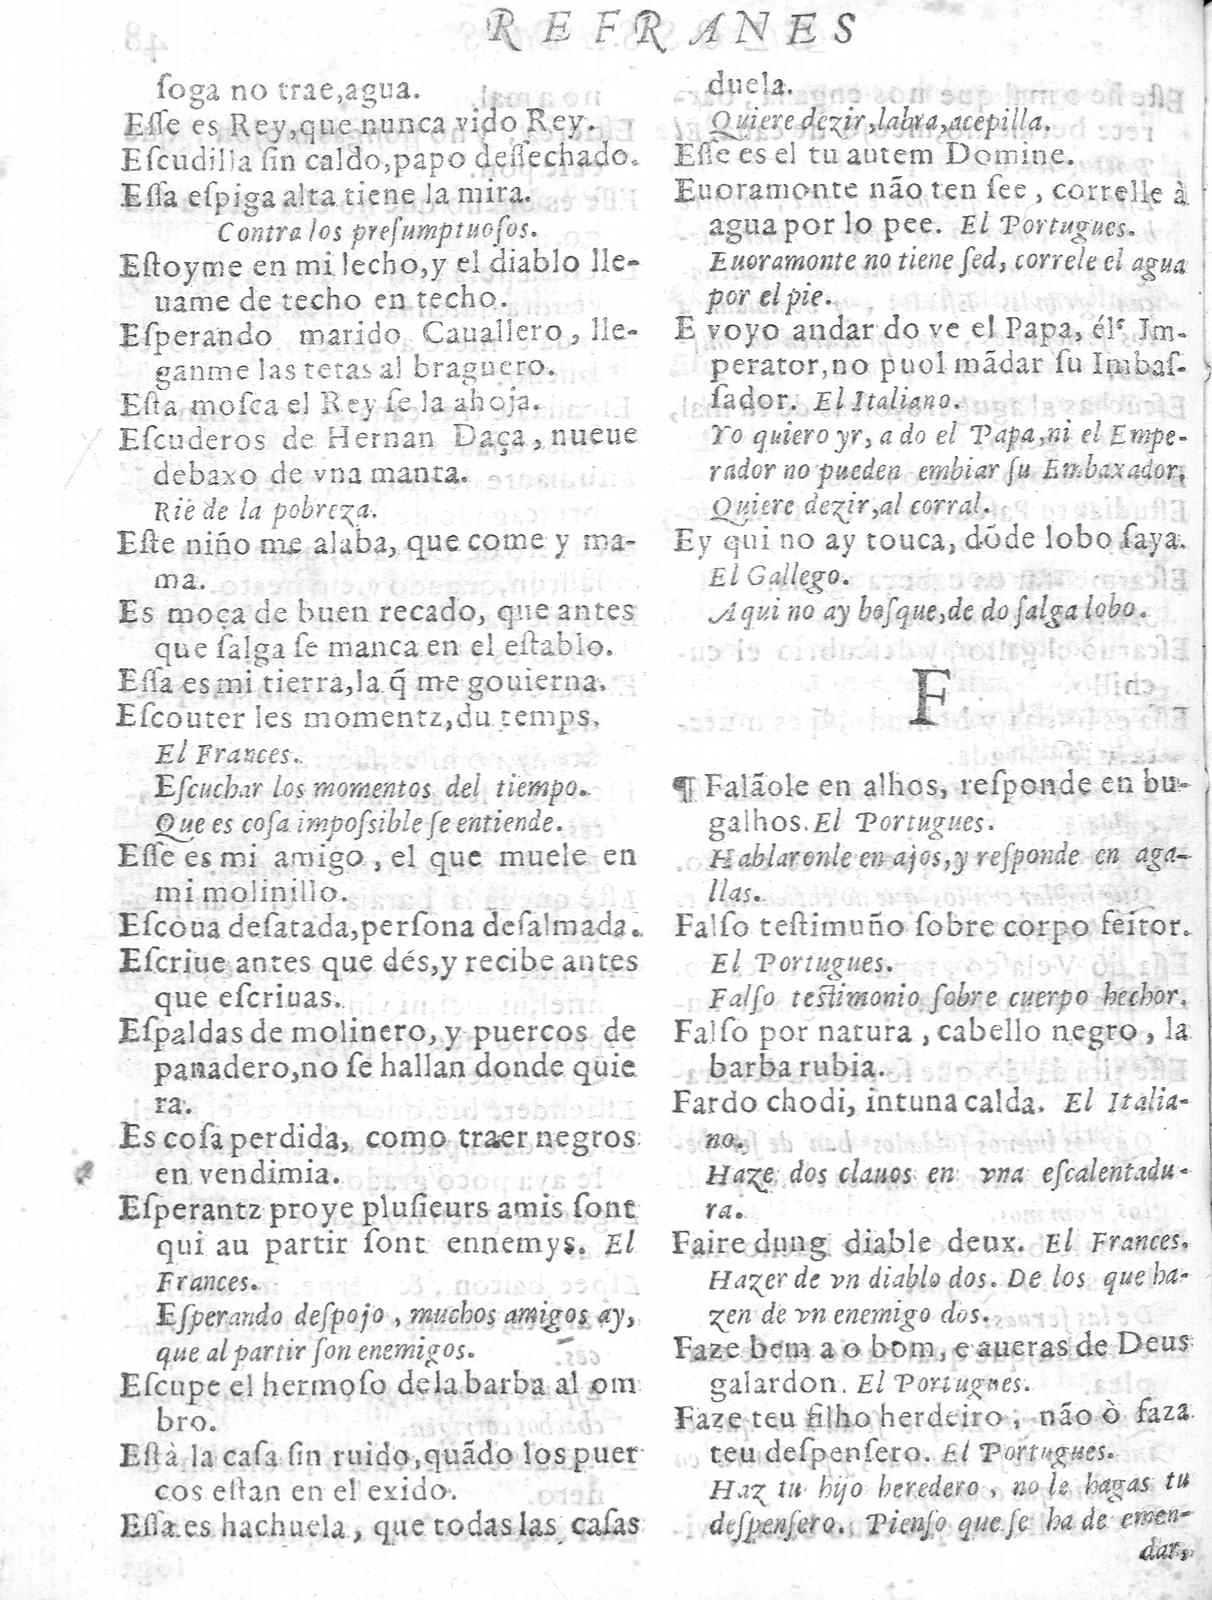 REFRANES
ſoga no trae,agua.
Eſſe es Rey,que nunca vido Rey.
Eſcudilla ſin caldo,papo deſſechado.
Eſſa eſpiga alta tiene la mira.
Contra los preſumptuoſos.
Eſtoyme en mi lecho,y el diablo lle-
uame de techo en techo.
Eſperando marido Cauallero, lle-
ganme las tetas al braguero.
Eſta moſca el Rey ſe la ahoja.
Eſcuderos de Hernan Daça, nueue
debaxo de vna manta.
Rië de la pobreza.
Eſte niño me alaba, que come y ma-
ma.
Es moça de buen recado, que antes
que ſalga ſe manca en el eſtablo.
Eſſa es mi tierra,la q̃ me gouierna.
Eſcouter les momentz,du temps.
El Frances.
Eſcuchar los momentos del tiempo.
Que es coſa impoſsible ſe entiende.
Eſſe es mi amigo, el que muele en
mi molinillo.
Eſcoua deſatada,perſona deſalmada.
Eſcriue antes que dés,y recibe antes
que eſcriuas.
Eſpaldas de molinero, y puercos de
panadero,no ſe hallan donde quie
ra.
Es coſa perdida, como traer negros
en vendimia.
Eſperantz proye pluſieurs amis ſont
qui au partir ſont ennemys. El
Frances.
Eſperando deſpojo, muchos amigos ay,
que al partir ſon enemigos.
Eſcupe el hermoſo de la barba al om
bro.
Eſtà la caſa ſin ruido,quãdo los puer
cos eſtan en el exido.
Eſſa es hachuela, que todas las caſas
duela.
Quiere dezir,labra,acepilla.
Eſſe es el tu autem Domine.
Euoramonte não ten ſee, correlle à
agua por lo pee. El Portugues.
Euoramonte no tiene ſed, correle el agua
por el pie.
E voyo andar do ve el Papa, él' Im-
perator,no puol mãdar ſu Imbaſ-
ſador. El Italiano.
Yo quiero yr, a do el Papa,ni el Empe-
rador no pueden embiar ſu Embaxador.
Quiere dezir,al corral.
Ey qui no ay touca, dõde lobo ſaya.
El Gallego.
Aqui no ay boſque,de do ſalga lobo.
F
¶ Falãole en alhos, reſponde en bu-
galhos. El Portugues.
Hablaronle en ajos,y reſponde en aga-
llas.
Falſo teſtimuño ſobre corpo feitor.
El Portugues.
Falſo teſtimonio ſobre cuerpo hechor.
Falſo por natura, cabello negro, la
barba rubia.
Fardo chodi, intuna calda. El Italia-
no.
Haze dos clauos en vna eſcalentadu-
ra.
Faire dung diable deux. El Frances.
Hazer de vn diablo dos. De los que ha-
zen de vn enemigo dos.
Faze bem a o bom, e aueras de Deus
galardon. El Portugues.
Faze teu filho herdeiro, não ò faza
teu deſpenſero. El Portugues.
Haz tu hijo heredero, no le hagas tu
deſpenſero. Pienſo que ſe ha de emen-
dar,